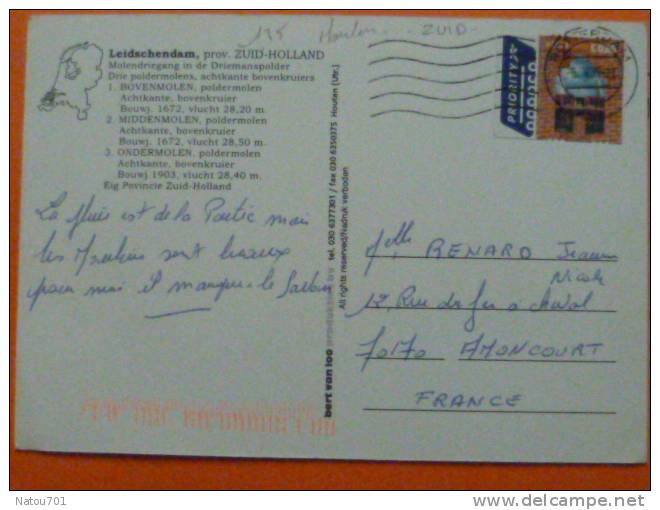 138 Houten - ZUID -
Leidschendam, prov. ZUID-HOLLAND
Molendriegang in de Driemanspolder
Drie poldermolens, achtkante bovenkruiers
1. BOVENMOLEN, poldermolen
Achtkante, bovenkruier
Bouwj. 1672, vlucht 28,20 m.
2. MIDDENMOLEN, poldermolen
Achtkante, bovenkruier
Bouwj. 1672, vlucht 28,50 m.
3. ONDERMOLEN, poldermolen
Achtkante, bovenkruier
Bouwj 1903, vlucht 28,40 m.
Eig Povincie Zuid-Holland
La pluie est de la Partie mais
les Moulins sont beaux
pour moi il manque le
bert van loo produktions bv tel. 030 6377301 / fax 030 6350375 Houten (Utr.)
All rights reserved/Nadruk verboden
PRIORITY
Melle RENARD Jeanne
Nicole
12, Rue du fer a cheval
70170 AMONCOURT
FRANCE
Natou701
delcampe.net